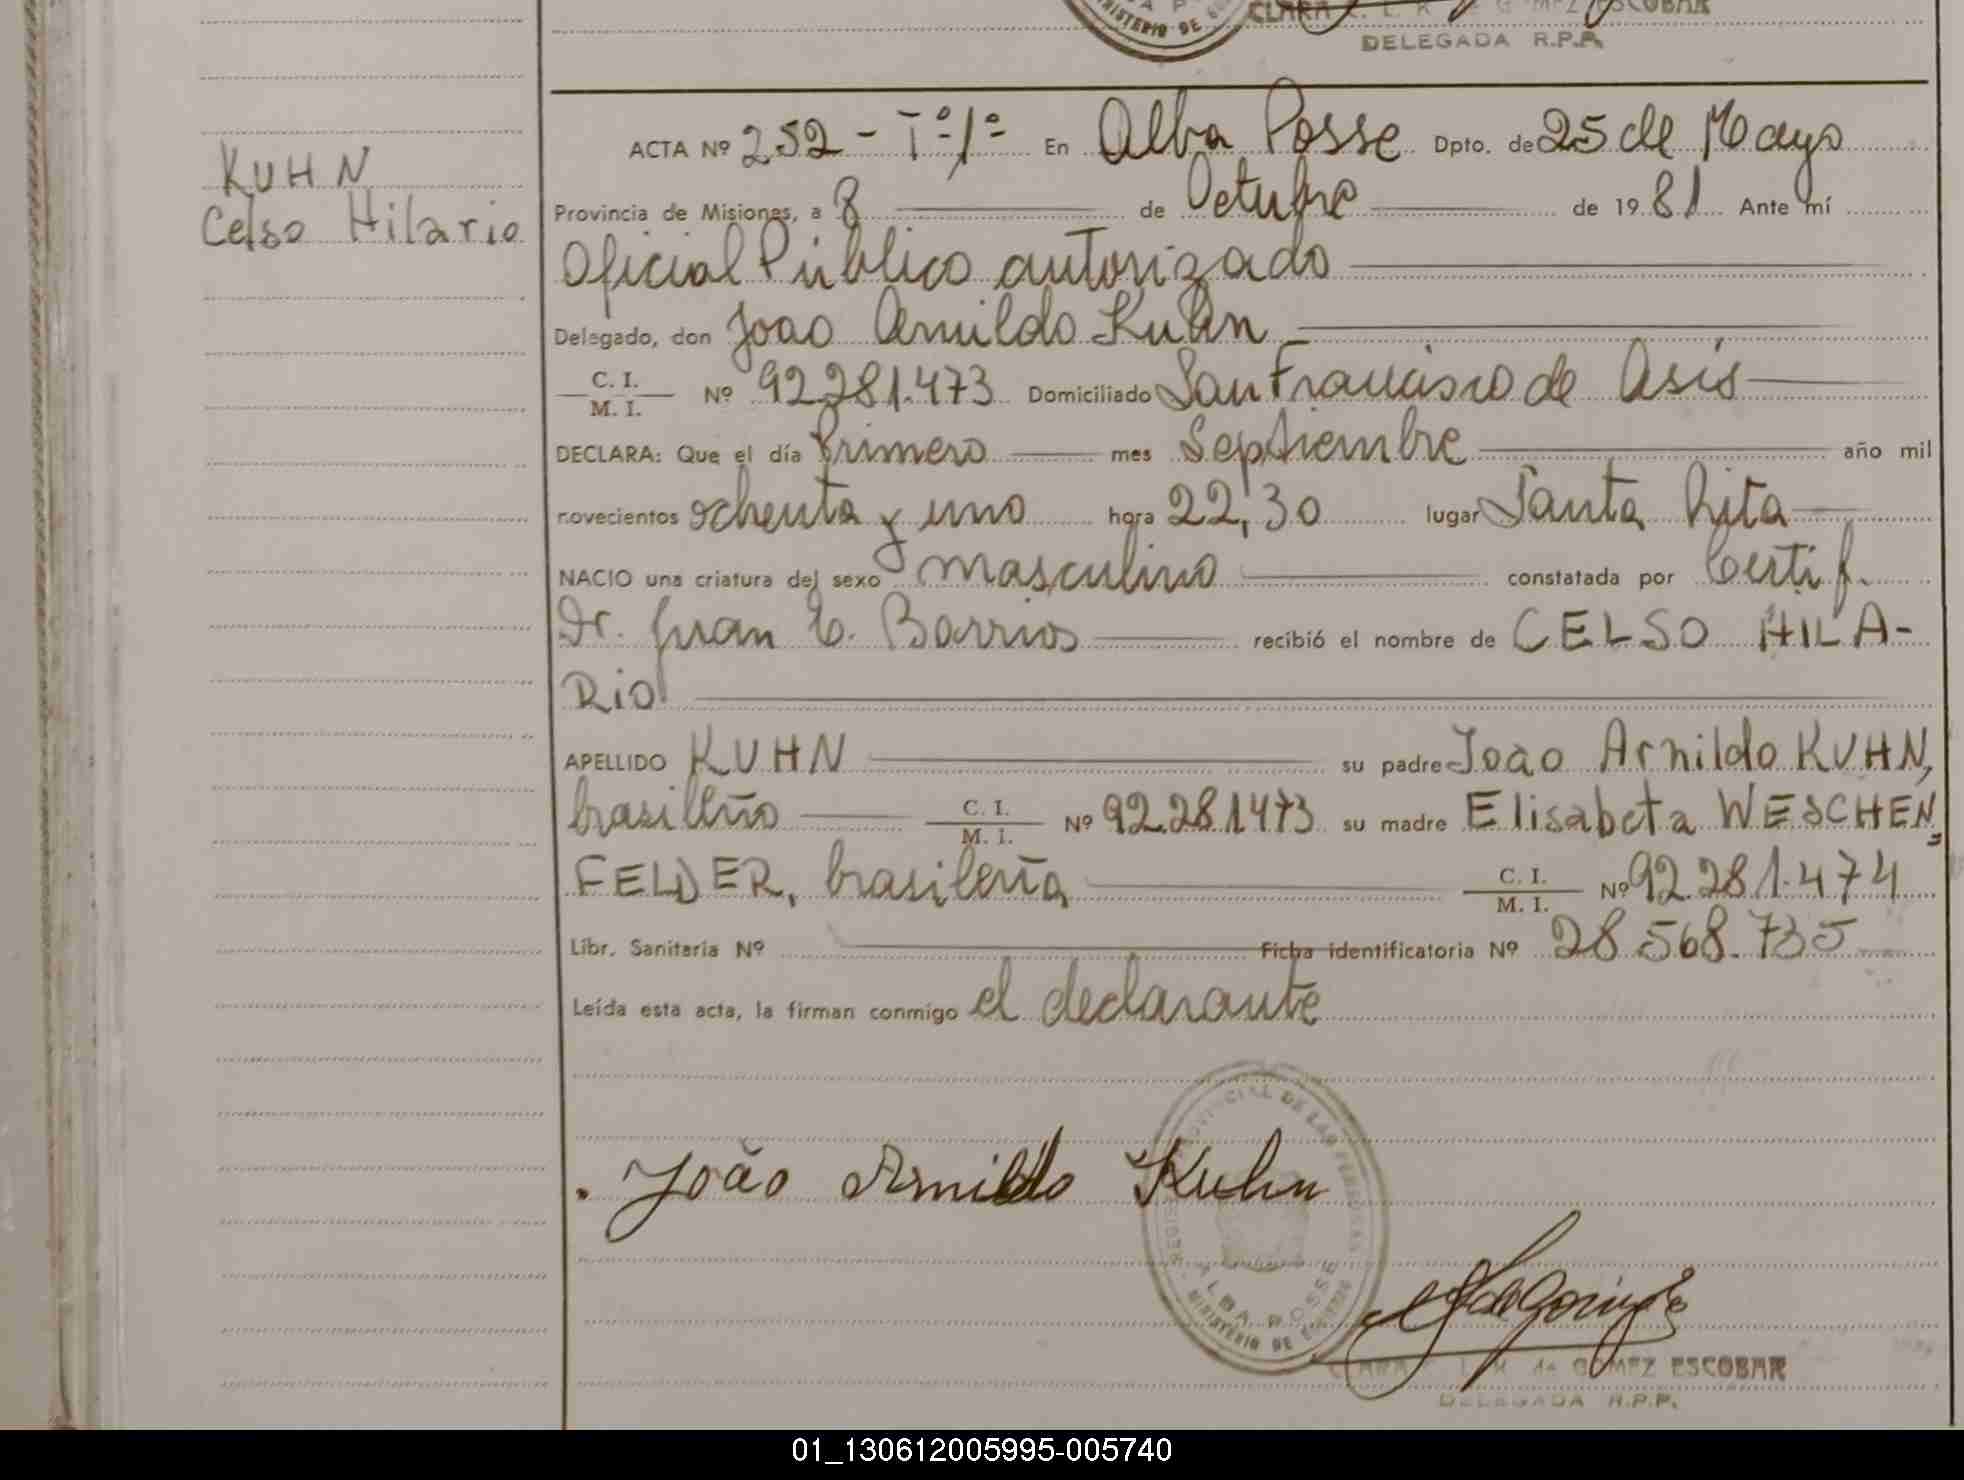 CLARA L. R. de GOMEZ ESCOBAR
DELEGADA R.P.P.
MINISTERIO DE
KUHN
Celso Hilario
ACTA Nº 252 - Tº 1º En Alba Posse Dpto. de 25 de Mayo
Provincia de Misiones, a 8 de Octubre de 1981 Ante mí
Oficial Público autorizado
Delegado, don Joao Arnildo Kuhn
C. I.
M. I. Nº 92.281.473 Domiciliado San Francisco de Asís
DECLARA: Que el día Primero mes Septiembre año mil
novecientos ochenta y uno hora 22,30 lugar Santa Rita
NACIO una criatura del sexo masculino constatada por Certif.
Dr. Juan C. Barrios recibió el nombre de CELSO HILA-
RIO
APELLIDO KUHN su padre Joao Arnildo KUHN,
brasileño C. I. M. I. Nº 92.281473 su madre Elisabeta WESCHEN=
FELDER, brasileña C. I. M. I. Nº 92.281.474
Libr. Sanitaria Nº Ficha identificatoria Nº 28.568.735
Leída esta acta, la firman conmigo el declarante
. João Arnildo Kuhn
PROVINCIAL DE LAS PERSONAS
ALBA POSSE
MINISTERIO DE
de GOMEZ ESCOBAR
DELEGADA R.P.P.
01_130612005995-005740